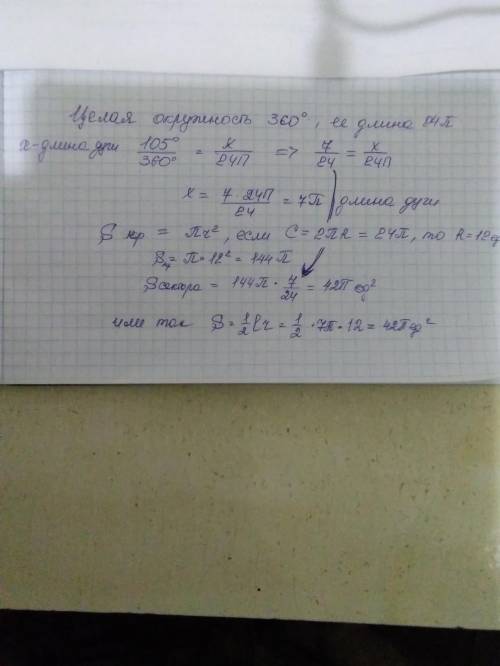 Целая окружность 360°, ее длина 24π
x-длина дуги 105°/360° = x/24π => 7/24 = x/24π
x = 7·24π/24 = 7π длина дуги
S кр = πr², если C = 2πR = 24π, то R = 12
S = π·12² = 144π
S сектора = 144π · 7/24 = 42π ед²
или так S = 1/2 lr = 1/2 · 7π · 12 = 42π ед²